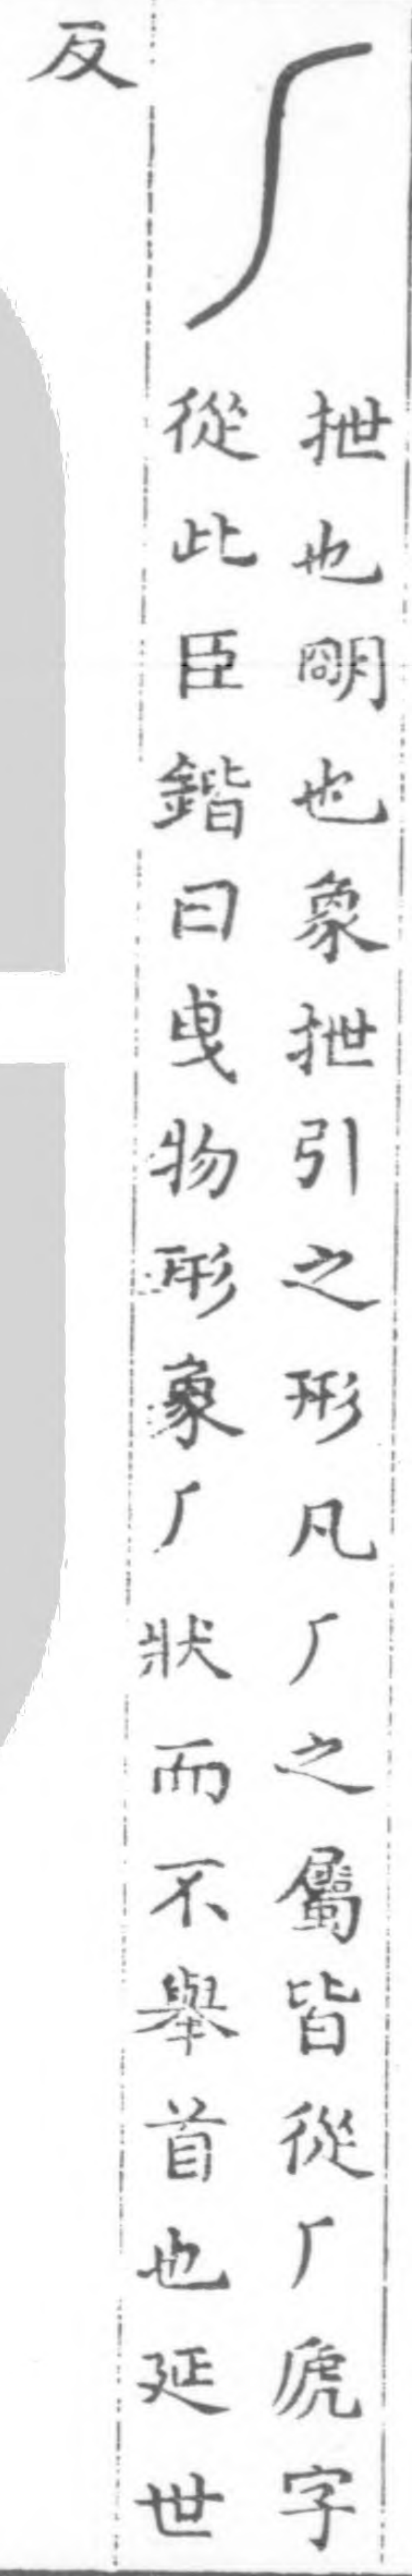 𠂆
抴也朙也象抴引之形凡𠂆之屬皆從𠂆虒字
從此臣鍇曰曵物形象𠂆狀而不舉首也延世
反